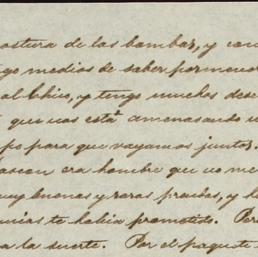 postura de las bombas, y com
go medios de saber pormenor
al Chico, y tengo muchos dese
que nos está amenasando u
po para que vayamos juntos.
era hombre que no me
uy buenas y raras pruebas, y h
cias te habia prometido. Per
a la suerte. Por el paquete